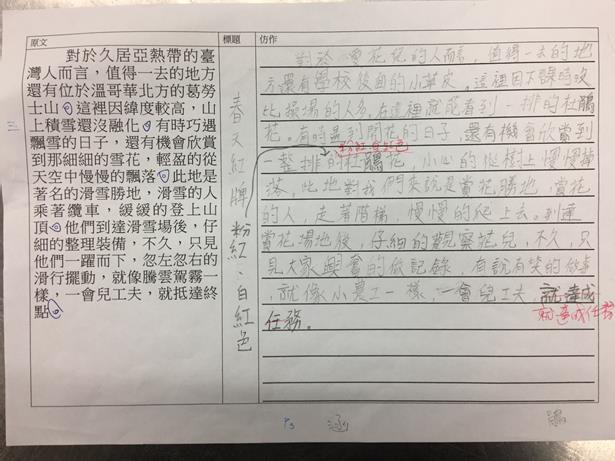 原文
標題
仿作
對於久居亞熱帶的臺
灣人而言，值得一去的地方
還有位於溫哥華北方的葛勞
士山。這裡因緯度較高，山
上積雪還沒融化。有時巧遇
飄雪的日子，還有機會欣賞
到那細細的雪花，輕盈的從
天空中慢慢的飄落。此地是
著名的滑雪勝地，滑雪的人
乘著纜車，緩緩的登上山
頂。他們到達滑雪場後，仔
細的整理裝備，不久，只見
他們一躍而下，忽左忽右的
滑行擺動，就像騰雲駕霧一
樣，一會兒工夫，就抵達終
點。
三
春天紅牌
粉紅、白紅色
對於愛花兒的人而言，值得一去的地
方還有學校後面的小草皮。這裡因下課時攻
比操場的人多，在這裡就能看到一排的杜鵑
花。有時遇到開花的日子，還有機會欣賞到
粉紅白紅色
一整排的杜鵑花，小心的從樹上慢慢掉
落，此地對我們來說是賞花勝地，賞花
的人，走著階梯，慢慢的爬上去。到達
賞花場地後，仔細的觀察花兒，不久，只
見大家興奮的做記錄，有說有笑的做事
，就像小農工一樣，一會兒工夫，就達成
就達成任務
任務。
P3
涵